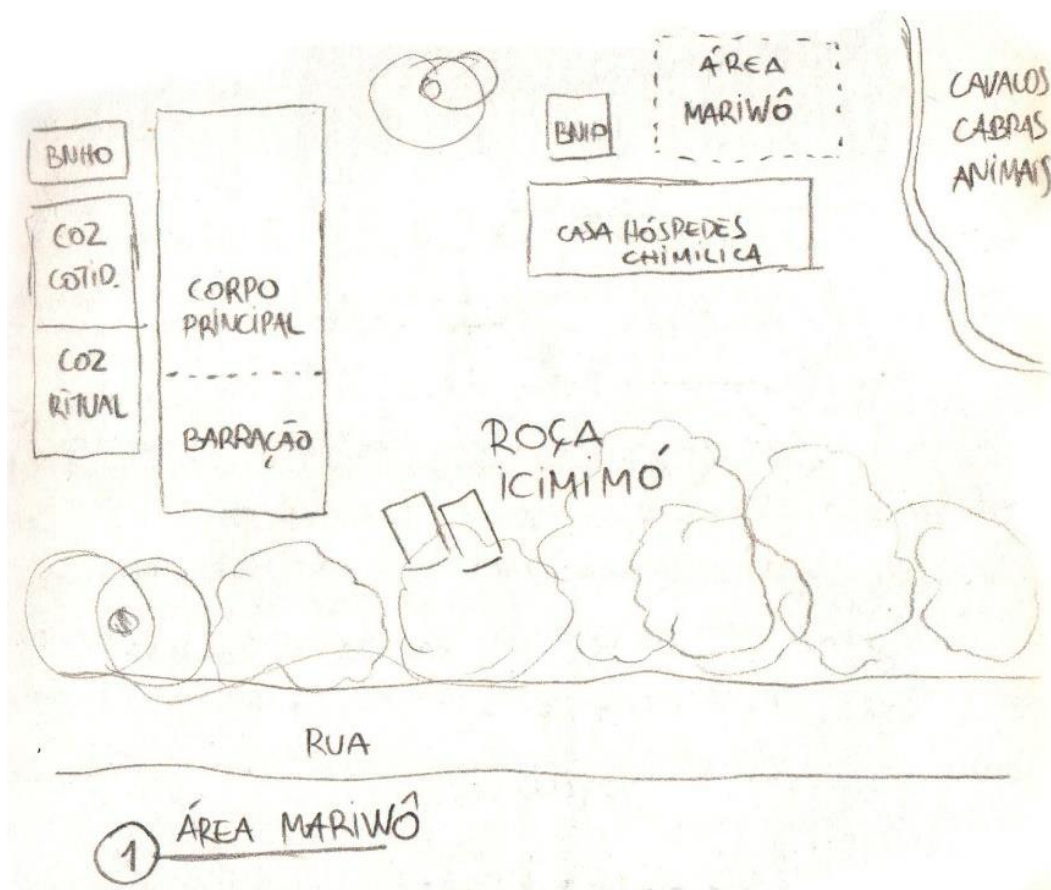 BNHO
COZ
COTID.
COZ
RITUAL
CORPO
PRINCIPAL
BARRAÇÃO
BNHO
ÁREA
MARIWÔ
CASA HÓSPEDES
CHIMILICA
CAVALOS
CABRAS
ANIMAIS
ROÇA
ICIMIMÓ
RUA
1 ÁREA MARIWÔ